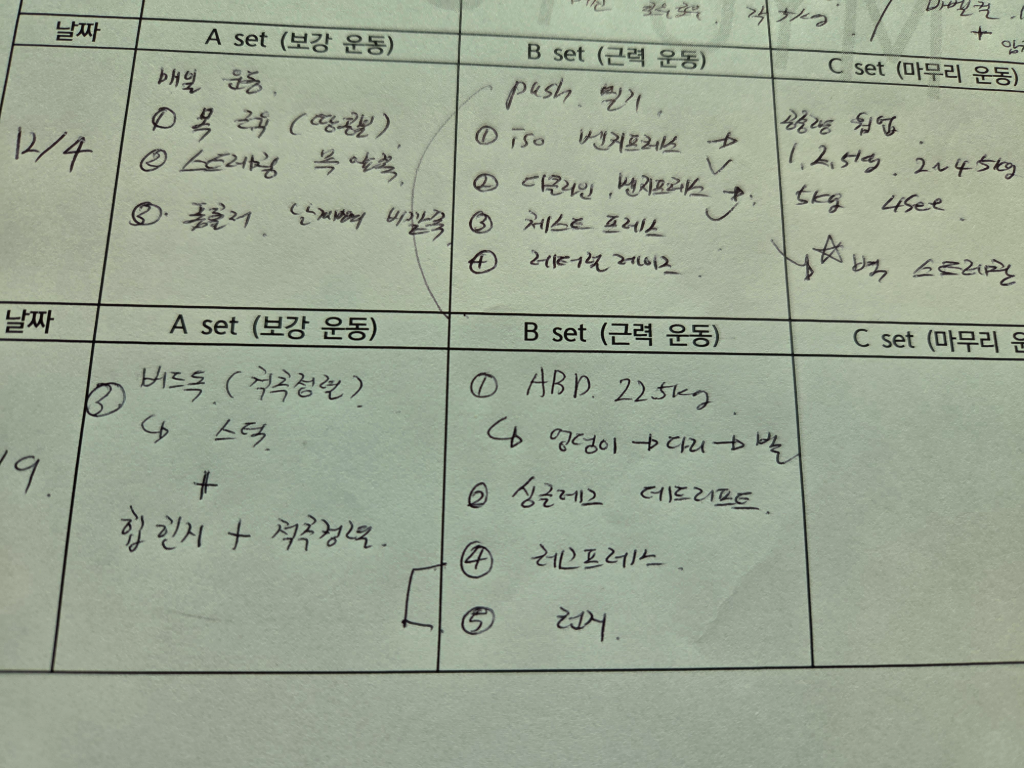 각 5kg /
+
날짜 A set (보강 운동) B set (근력 운동) C set (마무리 운동)
12/4
매일 운동.
① 목 근육 (땅콩볼)
② 스트레칭 목 앞쪽.
③ 폼롤러 바깥쪽
push. 밀기.
① iso 벤치프레스 →
② 디클라인. 벤치프레스 →
③ 체스트 프레스
④ 레터럴 레이즈
웜업
1, 2.5kg. 2~4.5kg
5kg 4set
↳ ☆ 벽 스트레칭
날짜 A set (보강 운동) B set (근력 운동) C set (마무리 운
/9.
③ 버드독 (척추정렬)
↳ 스틱
+
힙힌지 + 척추정렬.
① ABD. 225kg
↳ 엉덩이 → 다리 → 발
② 싱글레그 데드리프트
④ 레그프레스.
⑤ 런지.